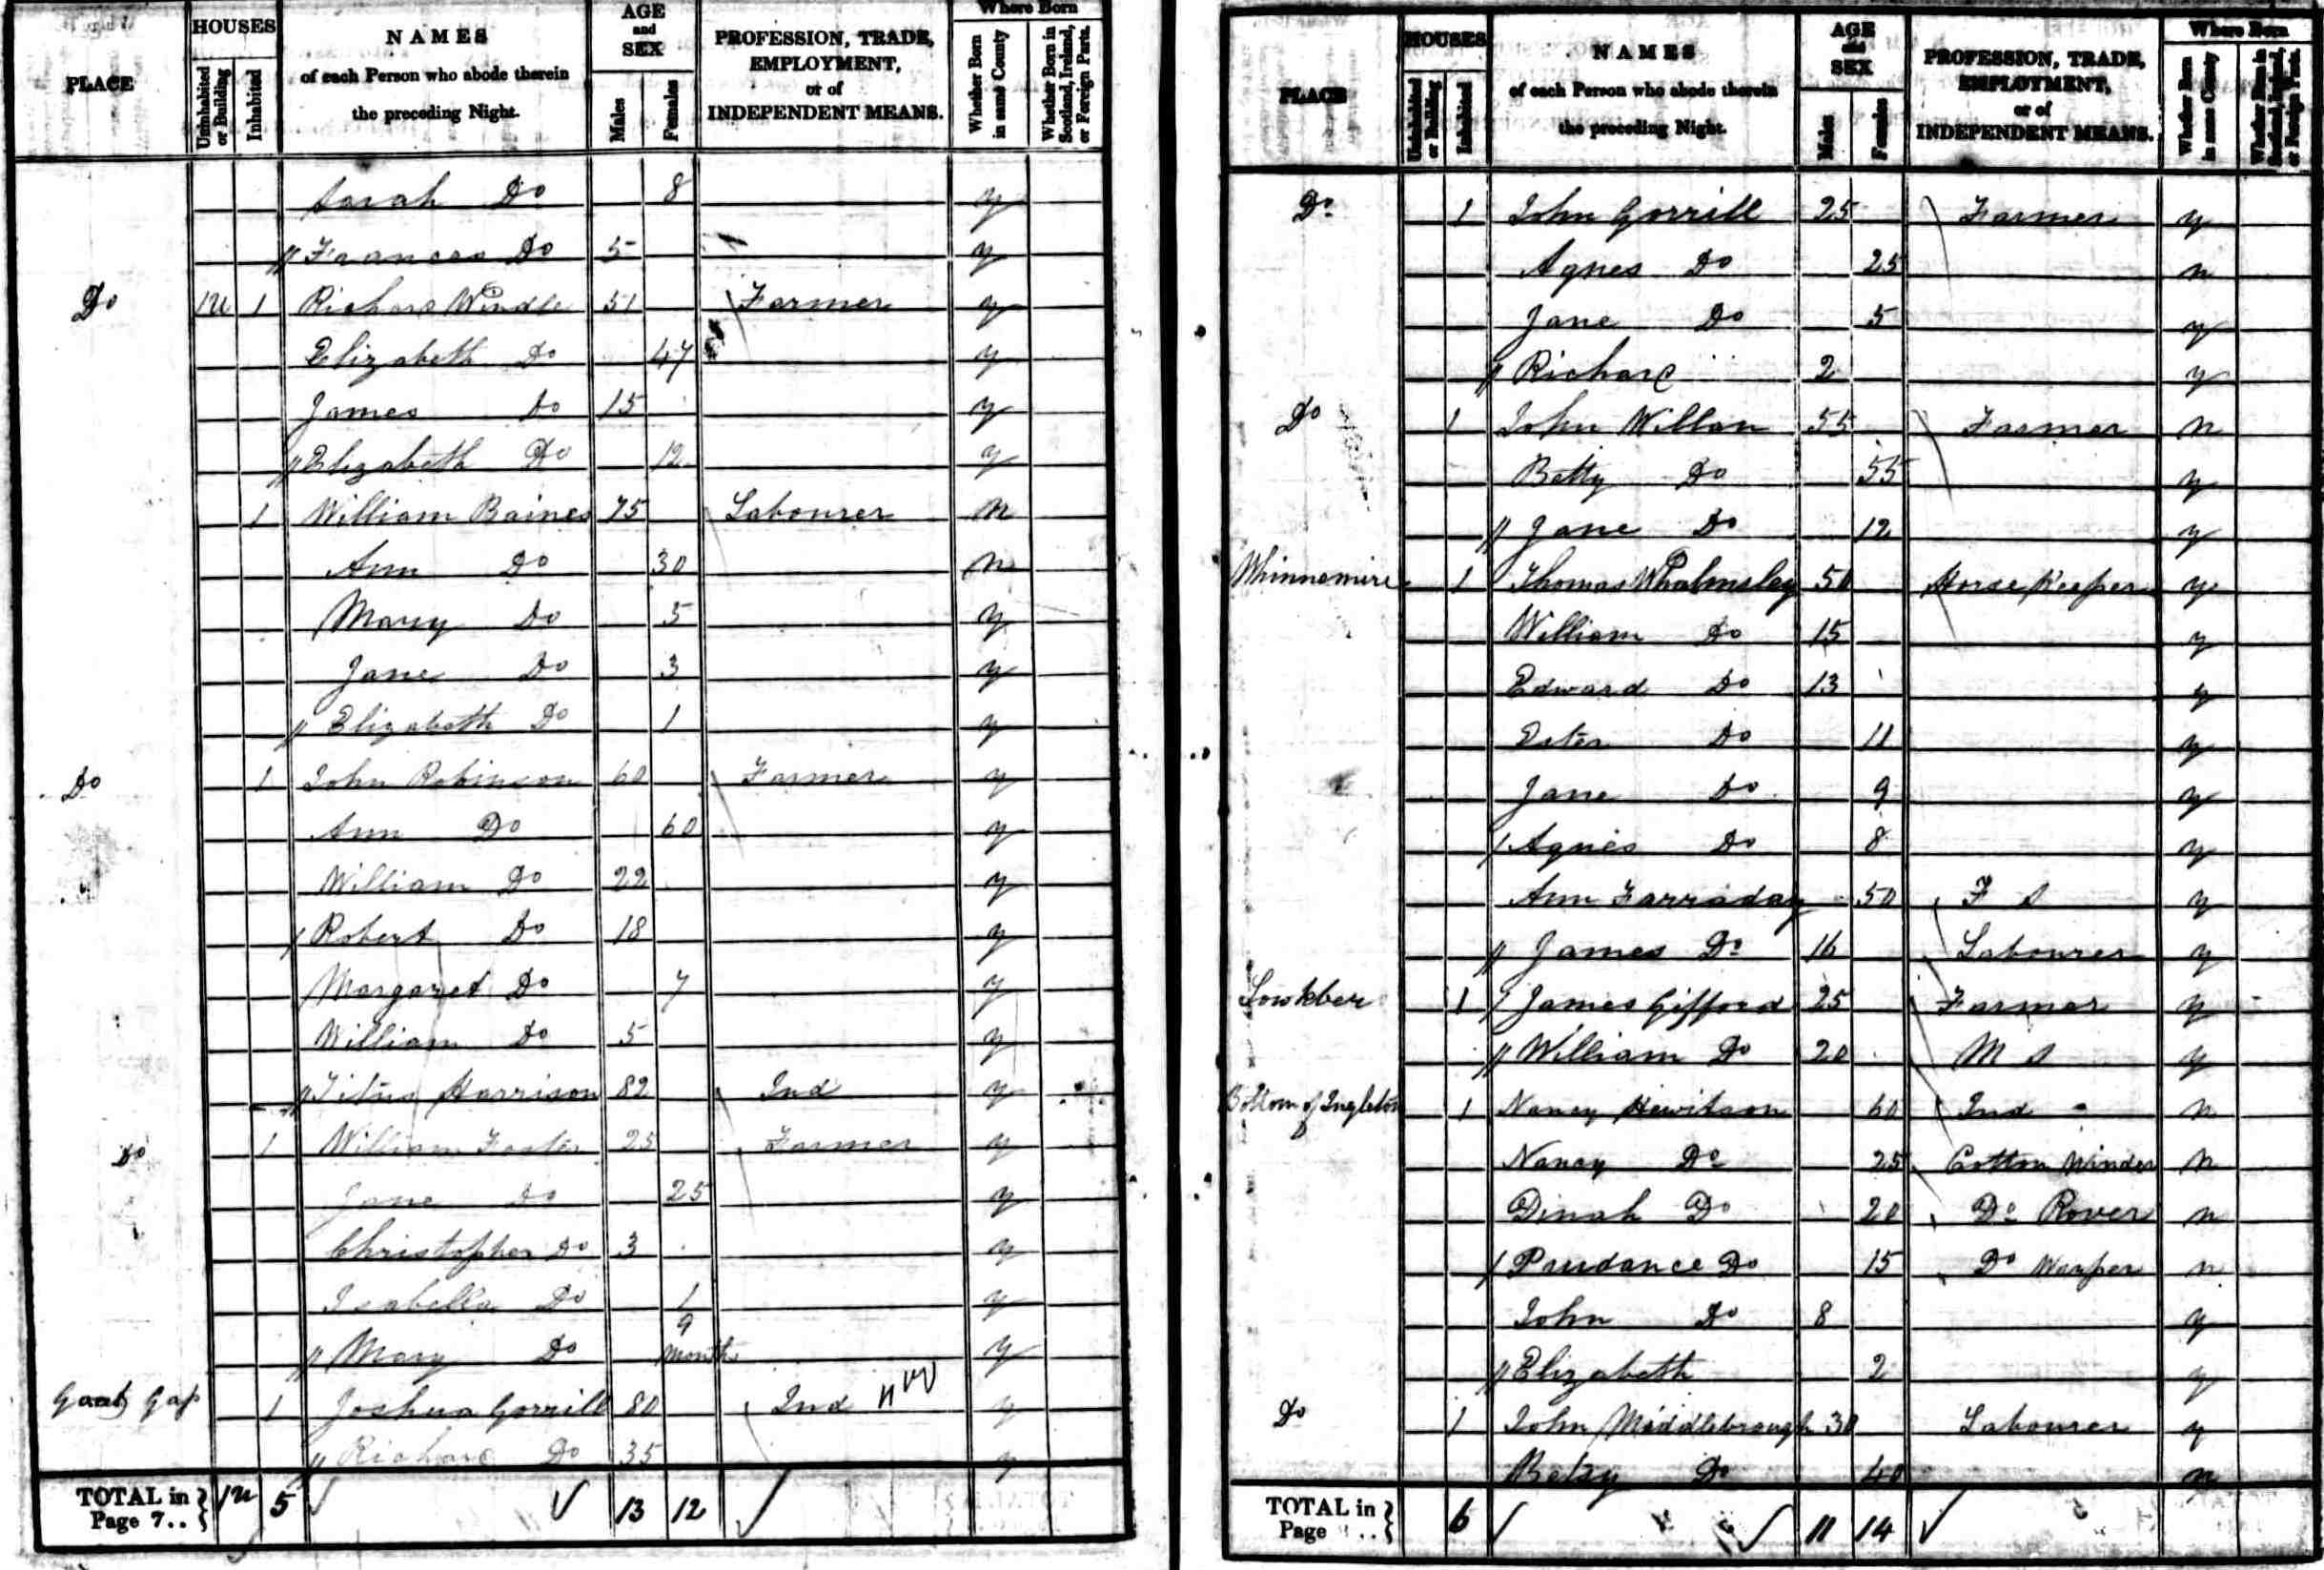 PLACE HOUSES Uninhabited or Building Inhabited NAMES of each Person who abode therein the preceding Night. AGE and SEX Males Females PROFESSION, TRADE, EMPLOYMENT, or of INDEPENDENT MEANS. Where Born Whether Born in same County Whether Born in Scotland, Ireland, or Foreign Parts.
Sarah Do 8 y
// Frances Do 5 y
Do 1U 1 Richard Windle 51 Farmer y
Elizabeth Do 47 y
James Do 15 y
// Elizabeth Do 12 y
1 William Baines 75 Labourer N
Ann Do 30 N
Mary Do 5 y
Jane Do 3 y
// Elizabeth Do 1 y
Do 1 John Robinson 60 Farmer y
Ann Do 60 y
William Do 22 y
/ Robert Do 18 y
Margaret Do 7 y
William Do 5 y
// Titus Harrison 82 Ind y
Do 1 William Foster 25 Farmer y
Jane Do 25 y
Christopher Do 3 y
Isabella Do 1 y
// Mary Do 9 month y
Gap 1 Joshua Gorrill 80 Ind y
// Richard Do 35 y
TOTAL in Page 7.. 1U 5 13 12
PLACE HOUSES Uninhabited or Building Inhabited NAMES of each Person who abode therein the preceding Night. AGE and SEX Males Females PROFESSION, TRADE, EMPLOYMENT, or of INDEPENDENT MEANS. Where Born Whether Born in same County Whether Born in Scotland, Ireland, or Foreign Parts.
Do 1 John Gorrill 25 Farmer y
Agnes Do 25 n
Jane Do 5 y
// Richard 2 y
Do 1 John Willan 55 Farmer N
Betty Do 55 y
// Jane Do 12 y
Whinnemire 1 Thomas Whalmsley 50 Horse Keeper y
William Do 15 y
Edward Do 13 y
Ester Do 11 y
Jane Do 9 y
/ Agnes Do 8 y
Ann Farraday 50 F S y
// James Do 16 Labourer y
Lowkber 1 / James Gifford 25 Farmer y
// William Do 20 M S y
Bottom of Ingleton 1 Nancy Hewitson 60 Ind n
Nancy Do 25 Cotton Winder N
Dinah Do 20 Do Rover n
/ Prudance Do 15 Do Warper n
John Do 8 y
// Elizabeth 2 y
Do 1 John Middlebrough 30 Labourer y
Betsy Do 40 n
TOTAL in Page .. 6 11 14